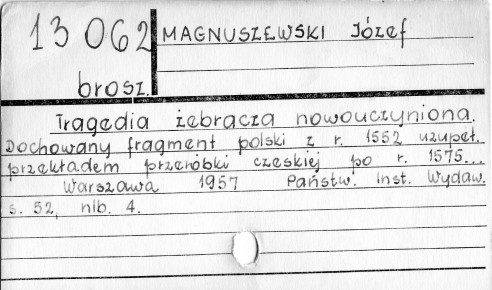 13 062
MAGNUSZEWSKI Józef
brosz.
Tragedia żebracza nowouczyniona.
Dochowany fragment polski z r. 1552 uzupeł.
przekładem przeróbki czeskiej po r. 1575...
Warszawa 1957 Państw. Inst. Wydaw.
s. 52, nlb. 4.